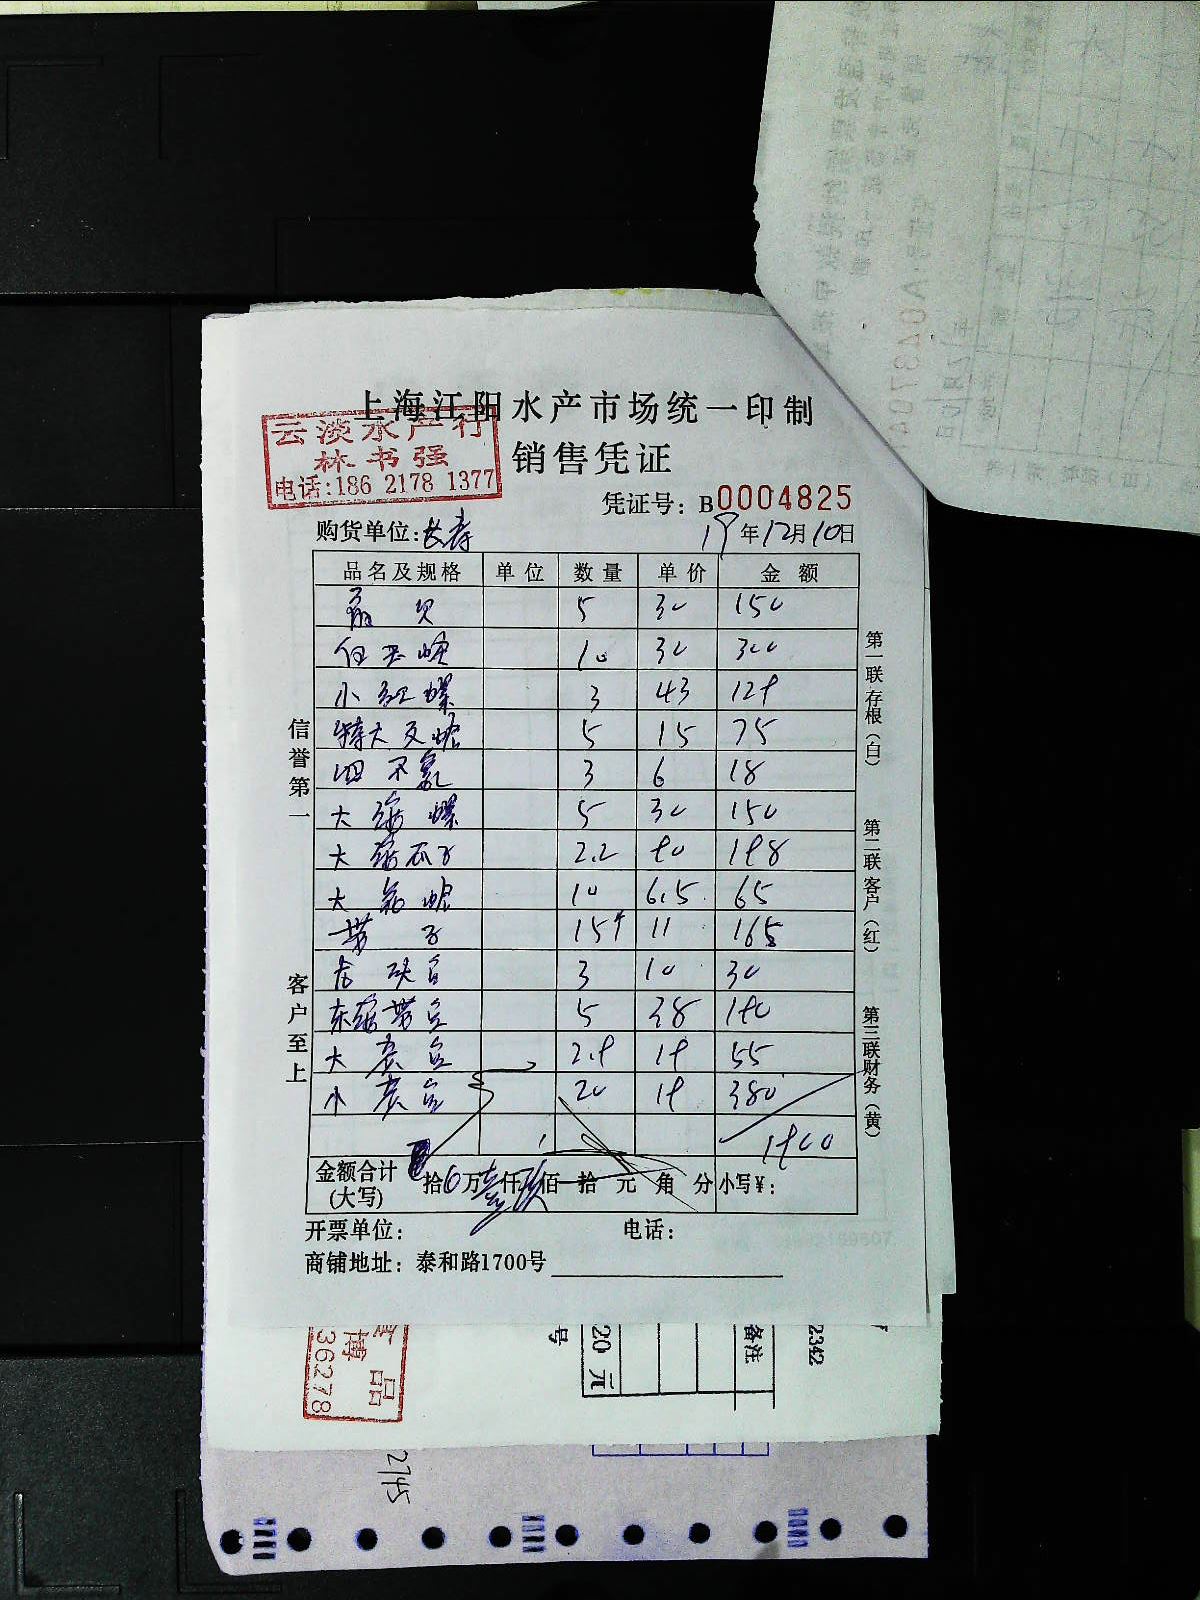 上海江阳水产市场统一印制
云淡水产行
林书强
电话:186 2178 1377
销售凭证
凭证号: B0004825
购货单位:长寿 19年12月10日
品名及规格 单位 数量 单价 金额
扇贝 5 30 150
白玉蛏 10 30 300
小红螺 3 43 129
特大叉蛤 5 15 75
四不象 3 6 18
大海螺 5 30 150
大海瓜子 2.2 90 198
大 蛤 10 6.5 65
带子 15个 11 165
3 10 30
东海带 5 38 190
大 2.9 19 55
小 20 19 380
1900
金额合计(大写) 拾0万壹仟玖佰 拾 元 角 分 小写¥:
开票单位: 电话:
商铺地址: 泰和路1700号
信誉第一 客户至上
第一联存根(白) 第二联客户(红) 第三联财务(黄)
博品
36278
号
20 元
备注
2342
2745